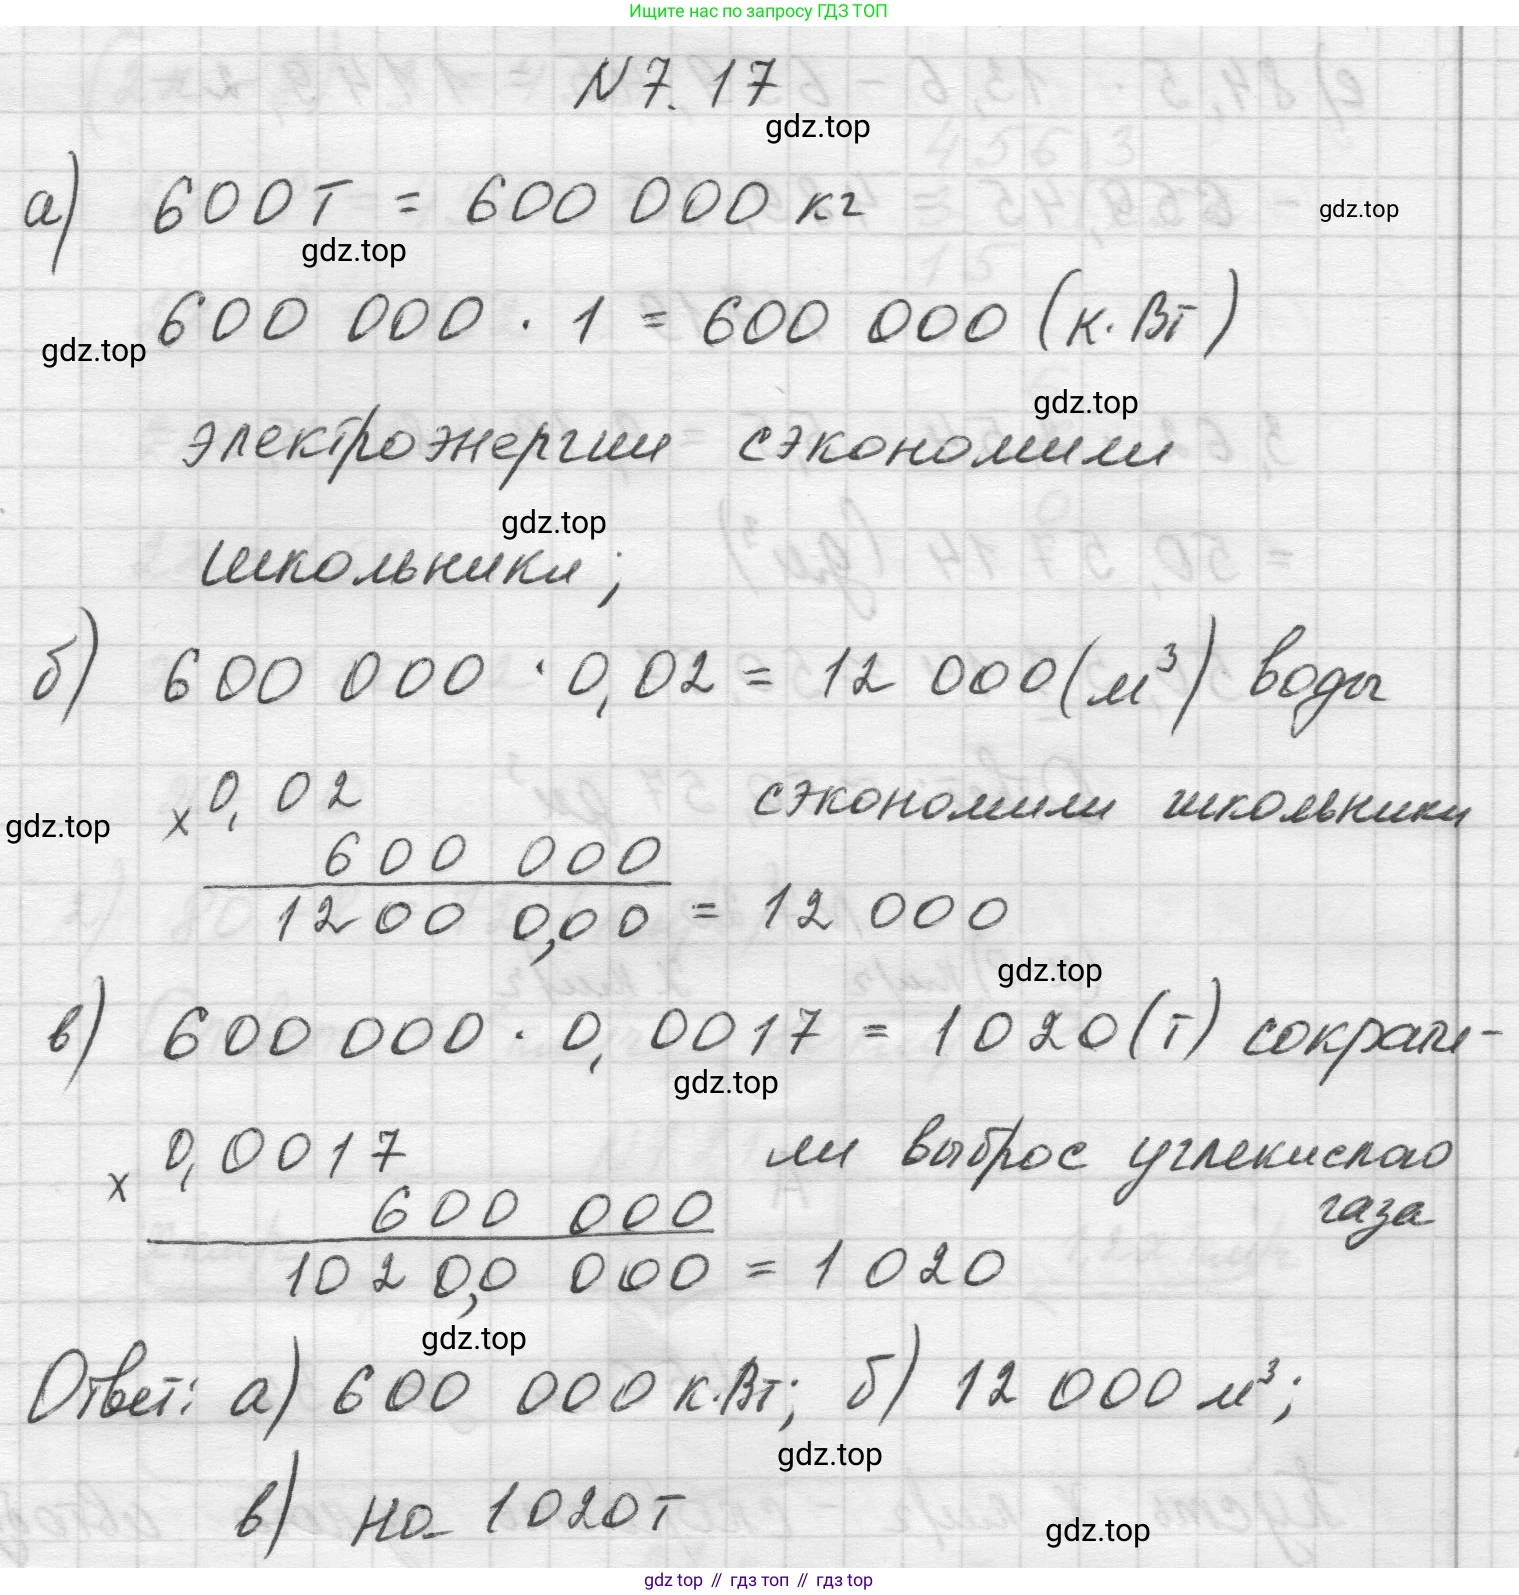 Ищите нас по запросу ГДЗ ТОП
N 7.17
gdz.top
а) 600 т = 600 000 кг
gdz.top
gdz.top
600 000 · 1 = 600 000 (к.Вт)
gdz.top
gdz.top
электроэнергии сэкономили
gdz.top
школьники;
б) 600 000 · 0,02 = 12 000 (м³) воды
× 0,02
сэкономили школьники
gdz.top
600 000
1200 0,00 = 12 000
gdz.top
в) 600 000 · 0,0017 = 1020 (т) сократи-
gdz.top
× 0,0017
ли выброс углекислого
600 000
газа
1020,0 000 = 1 020
gdz.top
Ответ: а) 600 000 к.Вт; б) 12 000 м³;
gdz.top
в) на 1020 т
gdz.top
gdz top // гдз топ // гдз top